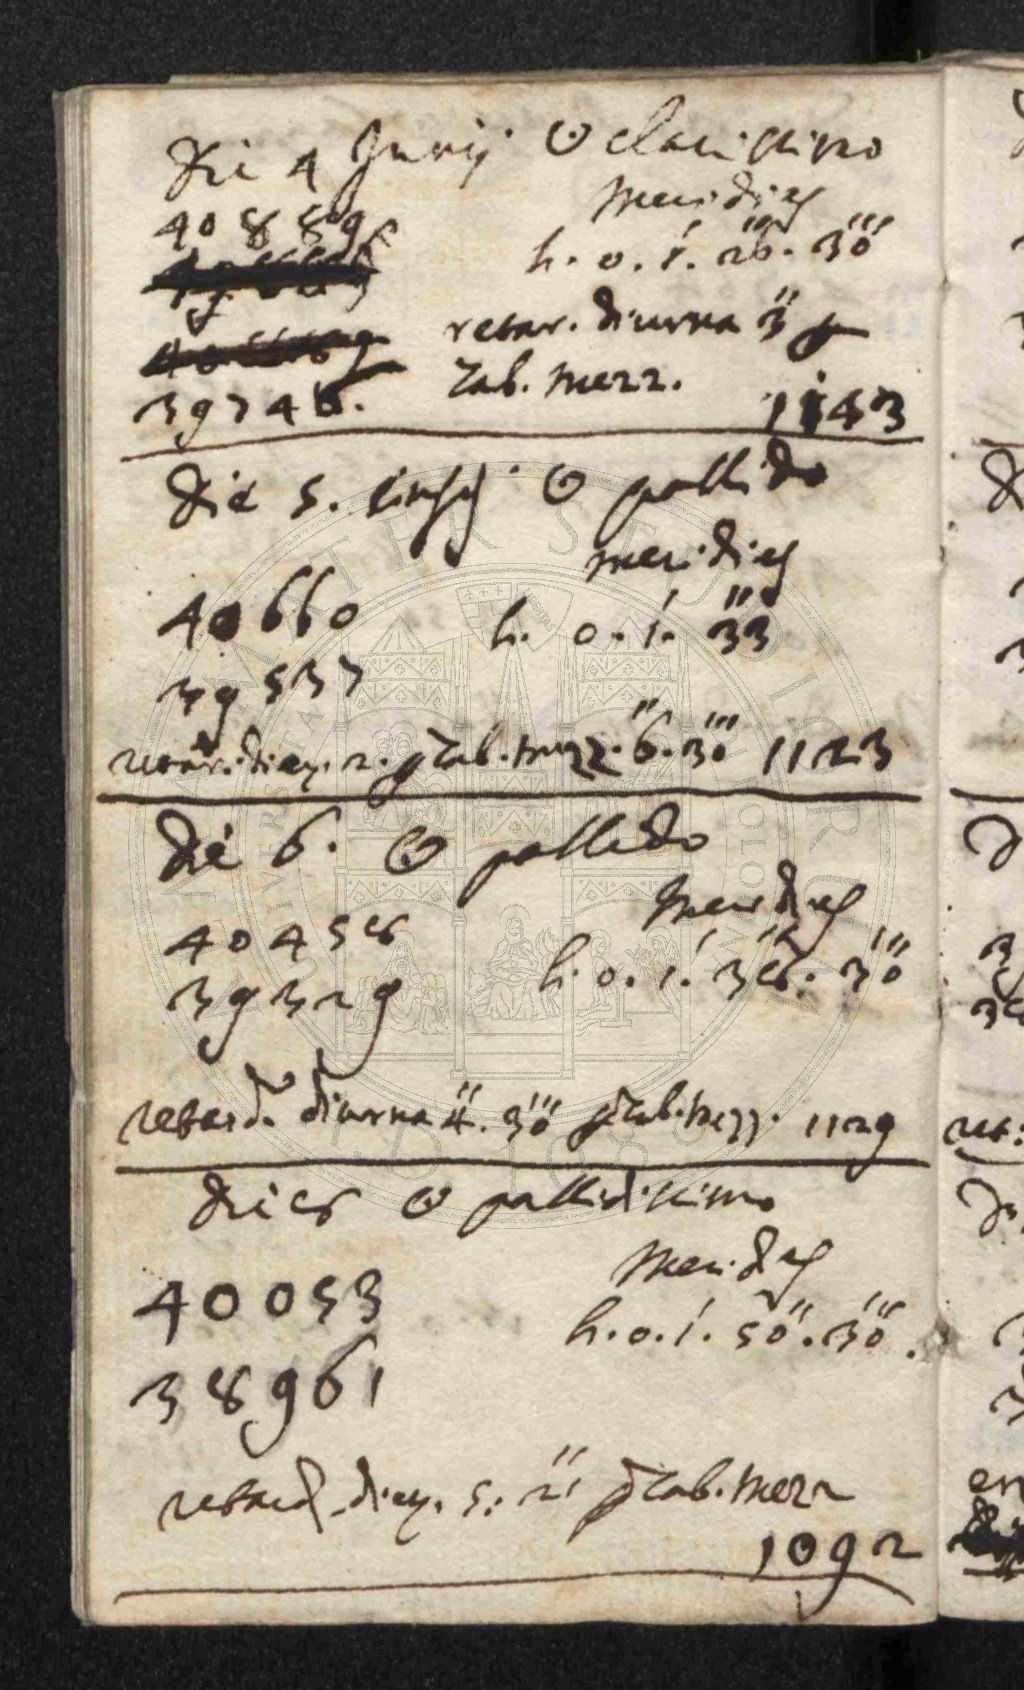 Die 4 Junij ☉ clarissimo
Meridies
40889
h. 0. 1'. 26''. 30'''
retar. diurna 3''
39746.
tab. mezz.
1143
Die 5. ☉ pallido
meridies
40660
h. 0. 1'. 33''
39537
retar. diez. 2. p tab. mezz. 6''. 30''' 1123
Die 6. ☉ pallido
Meridies
40458
h. 0. 1'. 38''. 30'''
39329
retard. diurna 4''. 30''' p tab. mezz. 1129
Die 8 ☉ pallidissimo
Meridies
40053
h. 0. 1'. 50''. 30'''.
38961
retard. diez. 5: 2'' p tab. mezz
1092